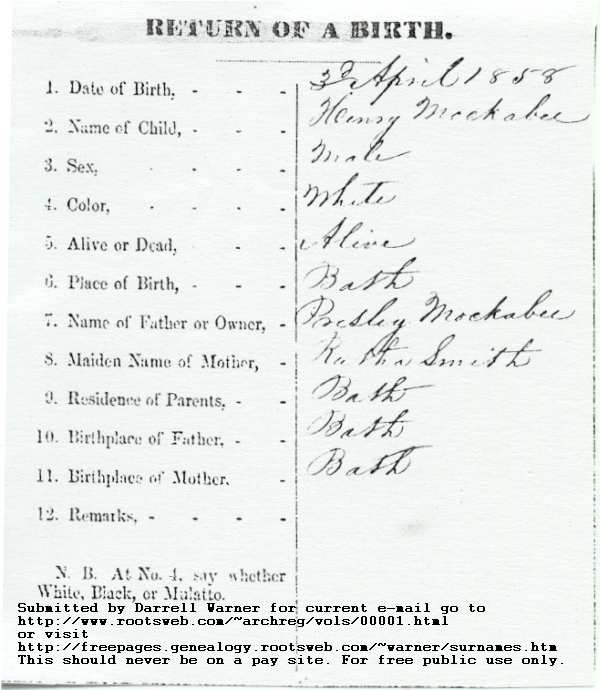 RETURN OF A BIRTH.
1. Date of Birth, - - - 3d April 1858
2. Name of Child, - - - Henry Mockabee
3. Sex, - - - Male
4. Color, - - - White
5. Alive or Dead, - - Alive
6. Place of Birth, - - - Bath
7. Name of Father or Owner, - Presley Mockabee
8. Maiden Name of Mother, - Rutha Smith
9. Residence of Parents, - - Bath
10. Birthplace of Father, - - Bath
11. Birthplace of Mother, - Bath
12. Remarks, - - - -
N. B. At No. 4, say whether
White, Black, or Mulatto.
Submitted by Darrell Warner for current e-mail go to
http://www.rootsweb.com/~archreg/vols/00001.html
or visit
http://freepages.genealogy.rootsweb.com/~warner/surnames.htm
This should never be on a pay site. For free public use only.